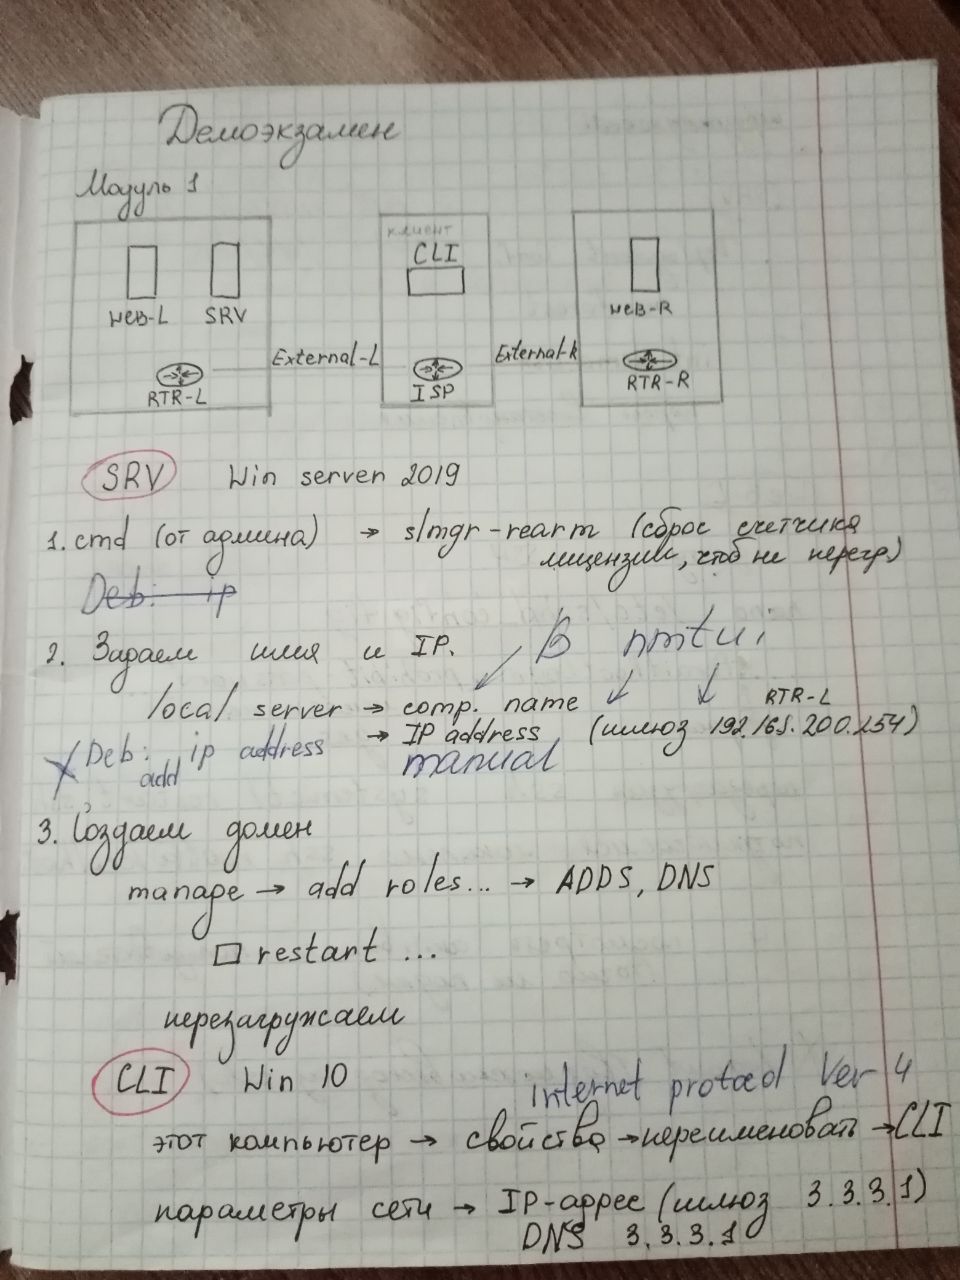 Демоэкзамен
Модуль 1
клиент
CLI
WEB-L SRV
WEB-R
External-L
External-R
RTR-L
ISP
RTR-R
SRV Win server 2019
1. cmd (от админа) → slmgr-rearm (сброс счетчика
лицензии, чтоб не перегр.)
Deb: ip
2. Задаем имя и IP. В nmtui
local server → comp. name
RTR-L
→ IP address (шлюз 192.168.200.254)
Deb: ip address
add
manual
3. Создаем домен
manage → add roles... → ADDS, DNS
restart ...
перезагружаем
CLI Win 10
internet protocol Ver 4
этот компьютер → свойства → переименовать → CLI
параметры сети → IP-адрес (шлюз 3.3.3.1)
DNS 3.3.3.1